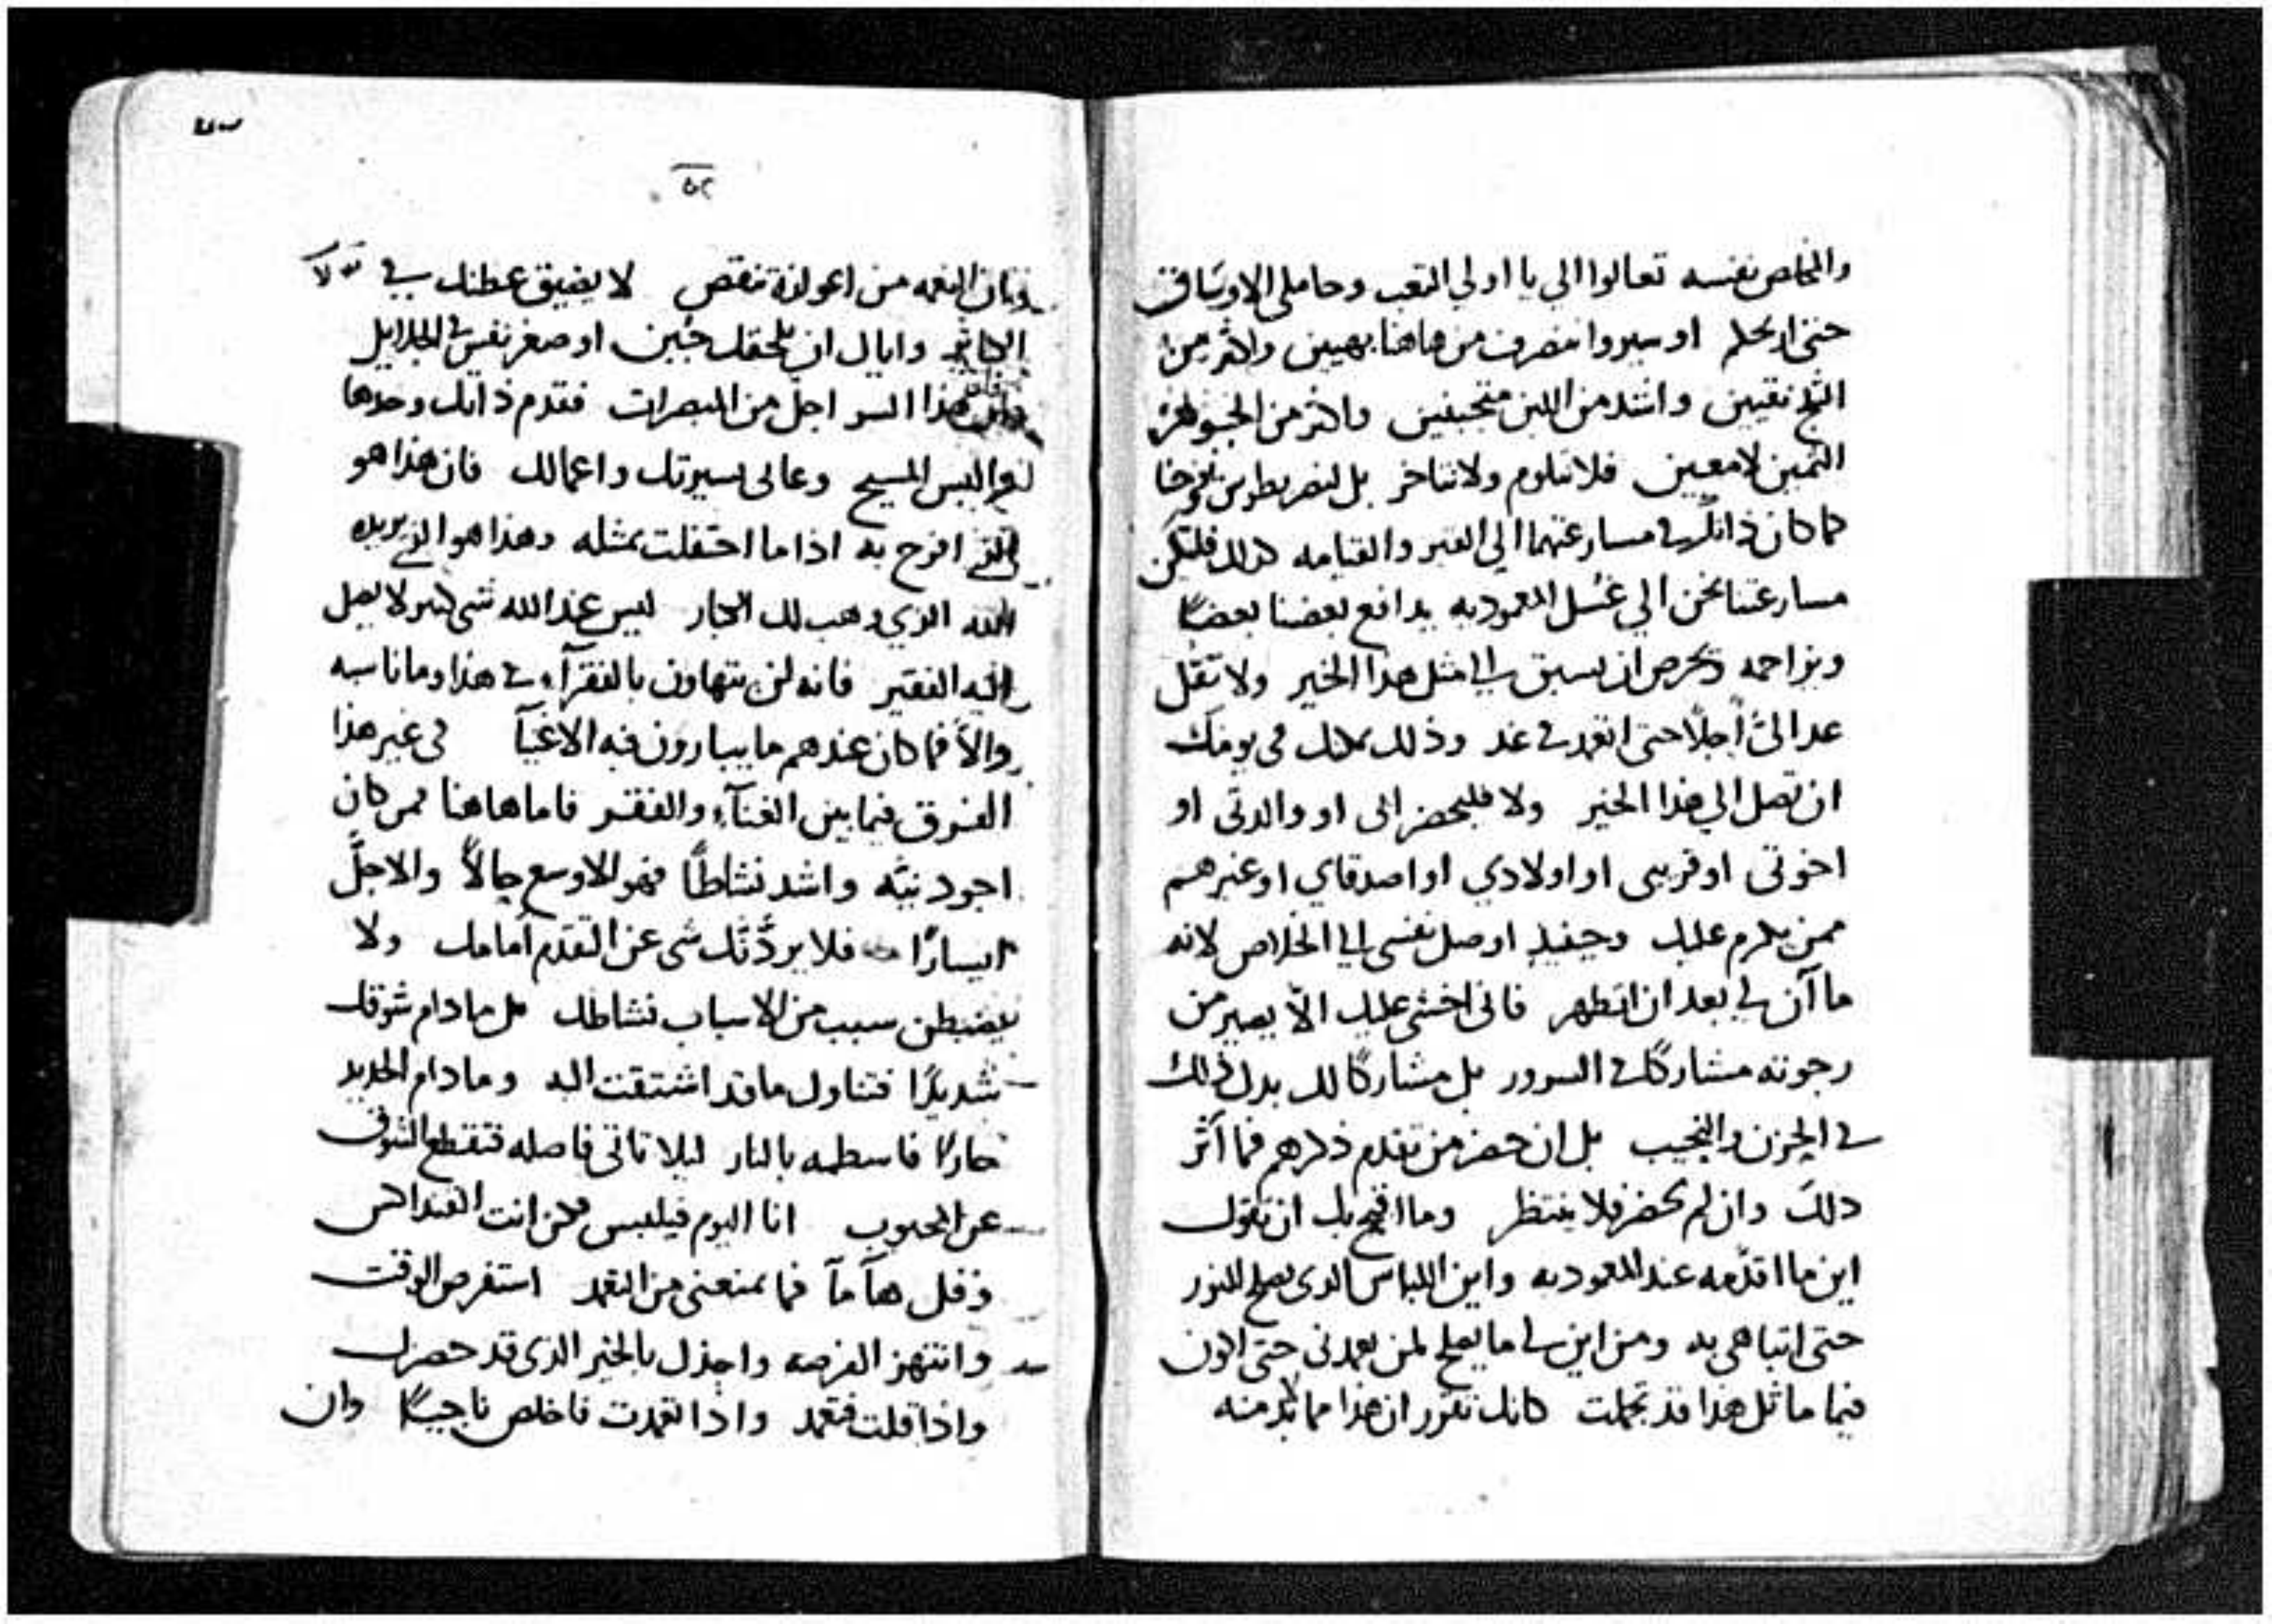 والخلاص نفسه تعالوا الي يا اولي التعب وحاملي الاوساق
حتى اريحكم او سيروا ننصرف من هاهنا بهيين واكثر من
الثلج نقيين واشد من اللبن متجبنين واكثر من الجوهر
الثمين لامعين فلا نتلوم ولا نتاخر بل لنصر بطرس ويوحنا
كما كان ذانك في مسارعتهما الي القبر والقيامه كذلك فلتكن
مسارعتنا نحن الي غسل المعموديه يدافع بعضنا بعضًا
ويزاحمه ويحرص ان يسبق الي مثل هذا الخير ولا تقل
عد الىّ اجلًا حتى اتعمد في غد وذلك يمكنك في يومك
ان تصل الي هذا الخير ولا فليحضر ابى او والدتى او
اخوتى او قريبى او اولادي او اصدقاي او غيرهم
ممن يكرم عليك وحينيذ اوصل نفسى الي الخلاص لانه
ما آن لي بعد ان اتطهر فانى اخشى عليك الّا يصير من
رجوته مشاركًا في السرور بل مشاركًا لك بدل ذلك
في الحزن والنحيب بل ان حضر من تقدم ذكرهم فما آثر
ذلك وان لم يحضر فلا ينتظر وما اقبح بك ان تقول
اين ما اقدّمه عند المعموديه واين اللباس الذى يصلح للنور
حتى اتباهى به ومن اين لي ما يصلح لمن يعمدنى حتى اكون
فيما ماثل هذا قد تجملت كانك تقرر ان هذا مما لا بد منه
٥٢
وبان النعمه من اعوازه تنقص لا يضيق عطنك في
الكباير واياك ان يلحقك جبن او صغر نفس في الجلايل
هذا السر اجل من المبصرات فقدم ذاتك وحدها
والبس المسيح وعالى بسيرتك واعمالك فان هذا هو
الذي افرح به اذا ما احتفلت بمثله وهذا هو الذي يريده
الله الذي وهب لك الكبار ليس عند الله شى كبير لا يصل
اليه الفقير فانه لن يتهاون بالفقرآء في هذا وما ناسبه
والّا فما كان عندهم ما يبارون فيه الاغنيآ فى غير هذا
الفرق فيما بين الغنآء والفقر فاما هاهنا فمن كان
اجود نيّه واشد نشاطًا فهو الاوسع حالًا والاجلّ
ايسارًا فلا يردّنّك شى عن التقدم أمامك ولا
يضبطن سبب من الاسباب نشاطك بل ما دام شوقك
شديدًا فتناول ما قد اشتقت اليه وما دام الحديد
حارًا فاسطمه بالبارد ليلا تاتى فاصله فتقطع الشوق
عن المحبوب انا اليوم فيلبس فكن انت القنداقس
وقل هآ مآ فما يمنعنى من التعمد استفرص الوقت
وانتهز الفرصه واجذل بالخير الذى قد حضرك
واذا قلت فتعمد واذا تعمدت فاخلص ناجيًا وان